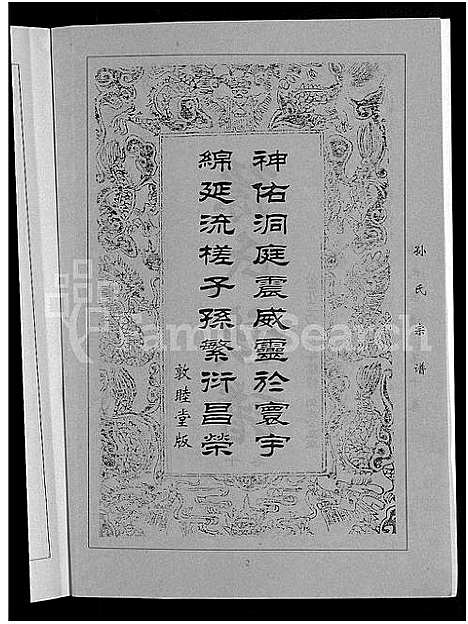 孙氏宗谱
神佑洞庭震威靈於寰宇
綿延流槎子孫繁衍昌榮
敦睦堂版
2
FamilySearch